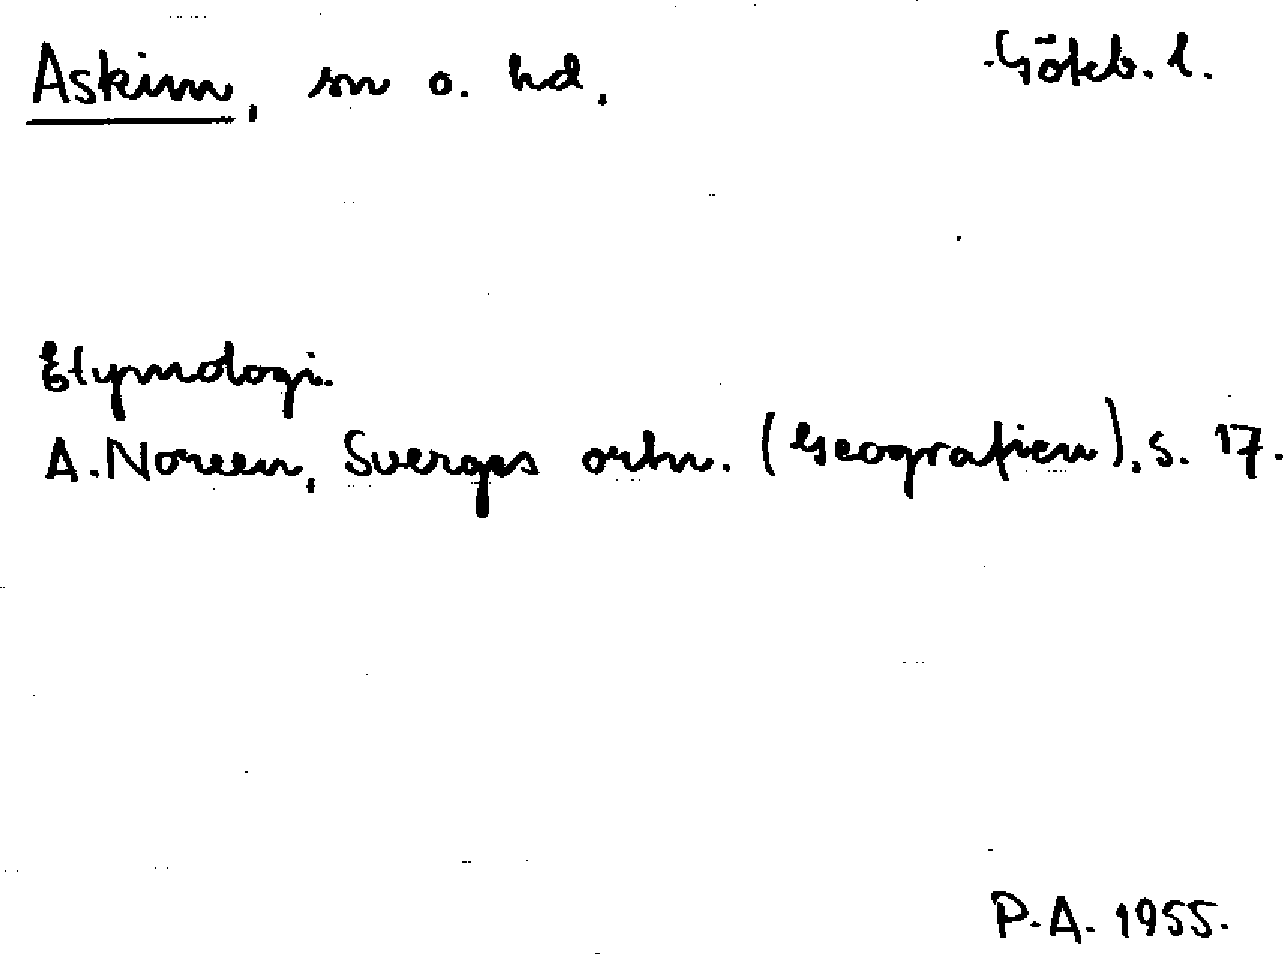 Askim, sn o. hd. Göteb. l.
Etymologi.
A. Noreen, Sverges ortn. (Geografien), s. 17.
P.A. 1955.